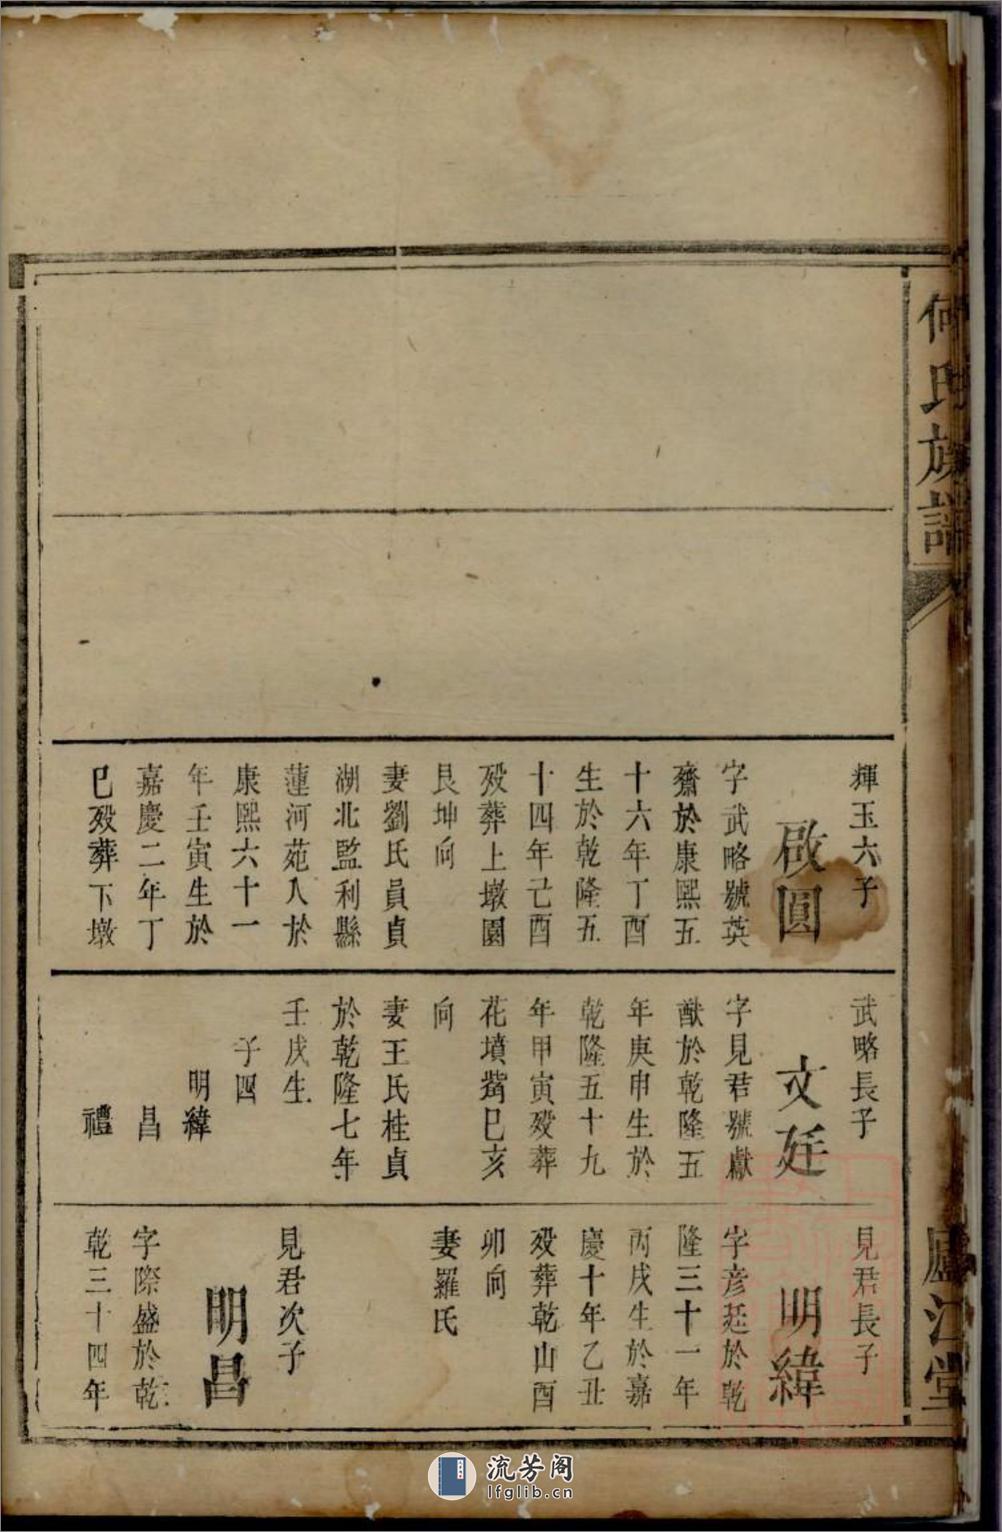 何氏族譜
廬江堂
輝玉六子
啟圓
字武略號英
齋於康熙五
十六年丁酉
生於乾隆五
十四年己酉
殁葬上墩園
艮坤向
妻劉氏員貞
湖北監利縣
蓮河苑人於
康熙六十一
年壬寅生於
嘉慶二年丁
巳殁葬下墩
武略長子
文廷
字見君號獻
猷於乾隆五
年庚申生於
乾隆五十九
年甲寅殁葬
花墳觜巳亥
向
妻王氏桂貞
於乾隆七年
壬戌生
子四
明緯
昌
禮
見君長子
明緯
字彦廷於乾
隆三十一年
丙戌生於嘉
慶十年乙丑
殁葬乾山酉
卯向
妻羅氏
見君次子
明昌
字際盛於乾
乾三十四年
流芳阁
lfglib.cn